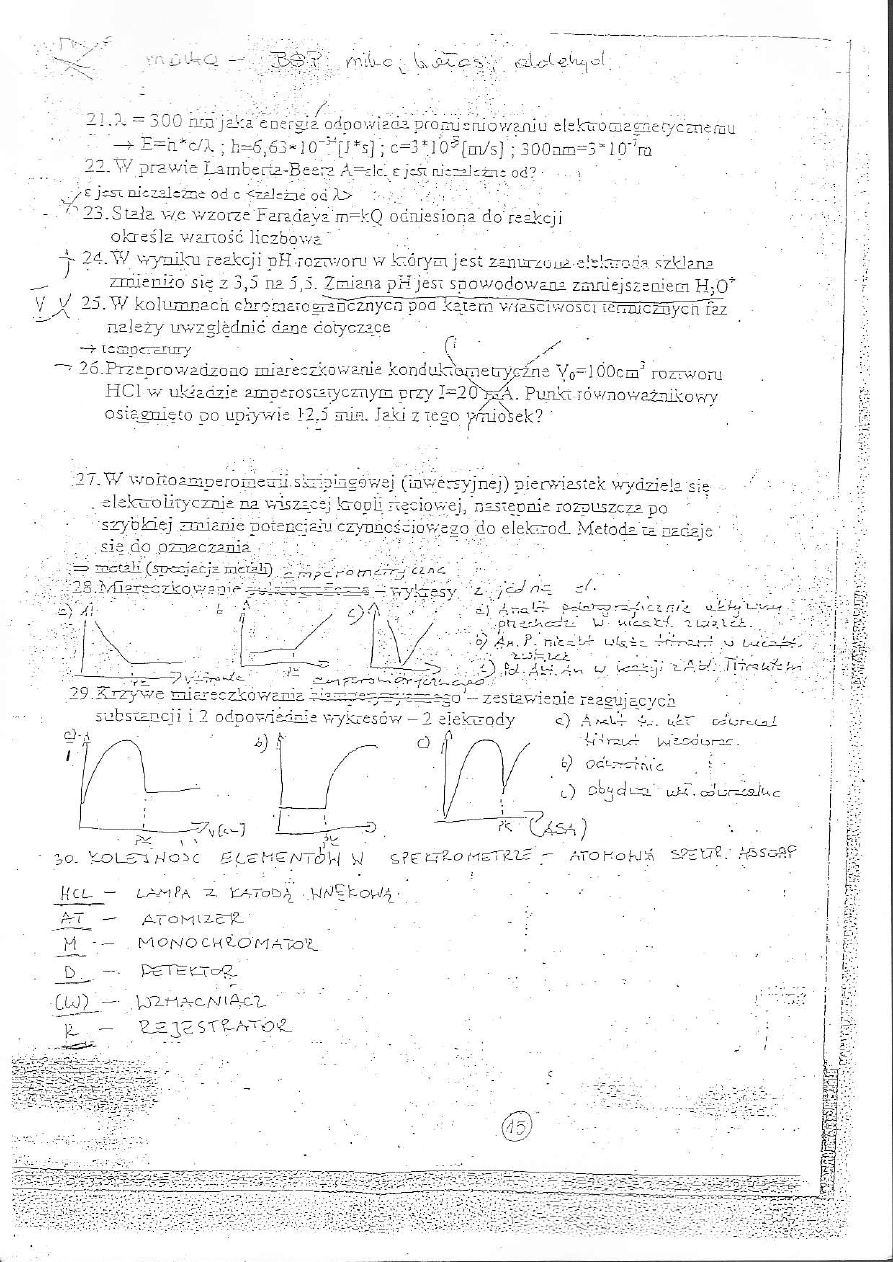 21.λ = 300 nm jaka energia odpowiada promieniowaniu elektromagnetycznemu
→ E=h*c/λ ; h=6,63*10⁻³⁴[J*s] ; c=3*10⁸[m/s] ; 300nm=3*10⁻⁷m
22.W prawie Lamberta-Beera A=εlc ε jest niezależne od?
ε jest niezależne od c <zależne od λ>
23.Stała we wzorze Faradaya m=kQ odniesiona do reakcji
określa wartość liczbowa
24.W wyniku reakcji pH roztworu w którym jest zanurzona elektroda szklana
zmieniło się z 3,5 na 5,5. Zmiana pH jest spowodowana zmniejszeniem H₃O⁺
25.W kolumnach chromatograficznych pod kątem właściwości termicznych faz
należy uwzględnić dane dotyczące
→ temperatury
26.Przeprowadzono miareczkowanie konduktometryczne V₀=100cm³ roztworu
HCl w układzie amperostatycznym przy I=20 mA. Punkt równoważnikowy
osiągnięto po upływie 12,5 min. Jaki z tego wniosek?
27.W woltoamperometrii stripingowej (inwersyjnej) pierwiastek wydziela się
elektrolitycznie na wiszącej kropli rtęciowej, następnie rozpuszcza po
szybkiej zmianie potencjału czynnościowego do elektrod. Metoda ta nadaje
się do oznaczania
⇒ metali (specjacja metali) amperometryczne
28.Miareczkowanie – wykresy z jedną el.
a) b c)
a) Analit polarograficznie aktywny
przechodzi w nieakt. związek
29.Krzywe miareczkowania – zestawienie reagujących
substancji i 2 odpowiednie wykresów – 2 elektrody
a) b) c)
b) odwrotnie
c) obydwa ukł. odwracalne
PK V[ml] PK PK (ASA)
30. KOLEJNOŚĆ ELEMENTÓW W SPEKTROMETRZE – ATOMOWA SPEKTR. ABSORP
HCL – LAMPA Z KATODĄ WNĘKOWĄ
AT – ATOMIZER
M – MONOCHROMATOR
D – DETEKTOR
(W) – WZMACNIACZ
R – REJESTRATOR
15